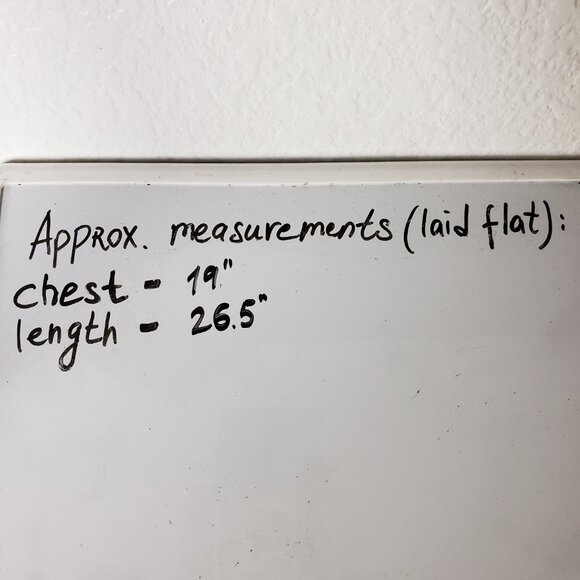 Approx. measurements (laid flat):
chest - 19"
length - 26.5"